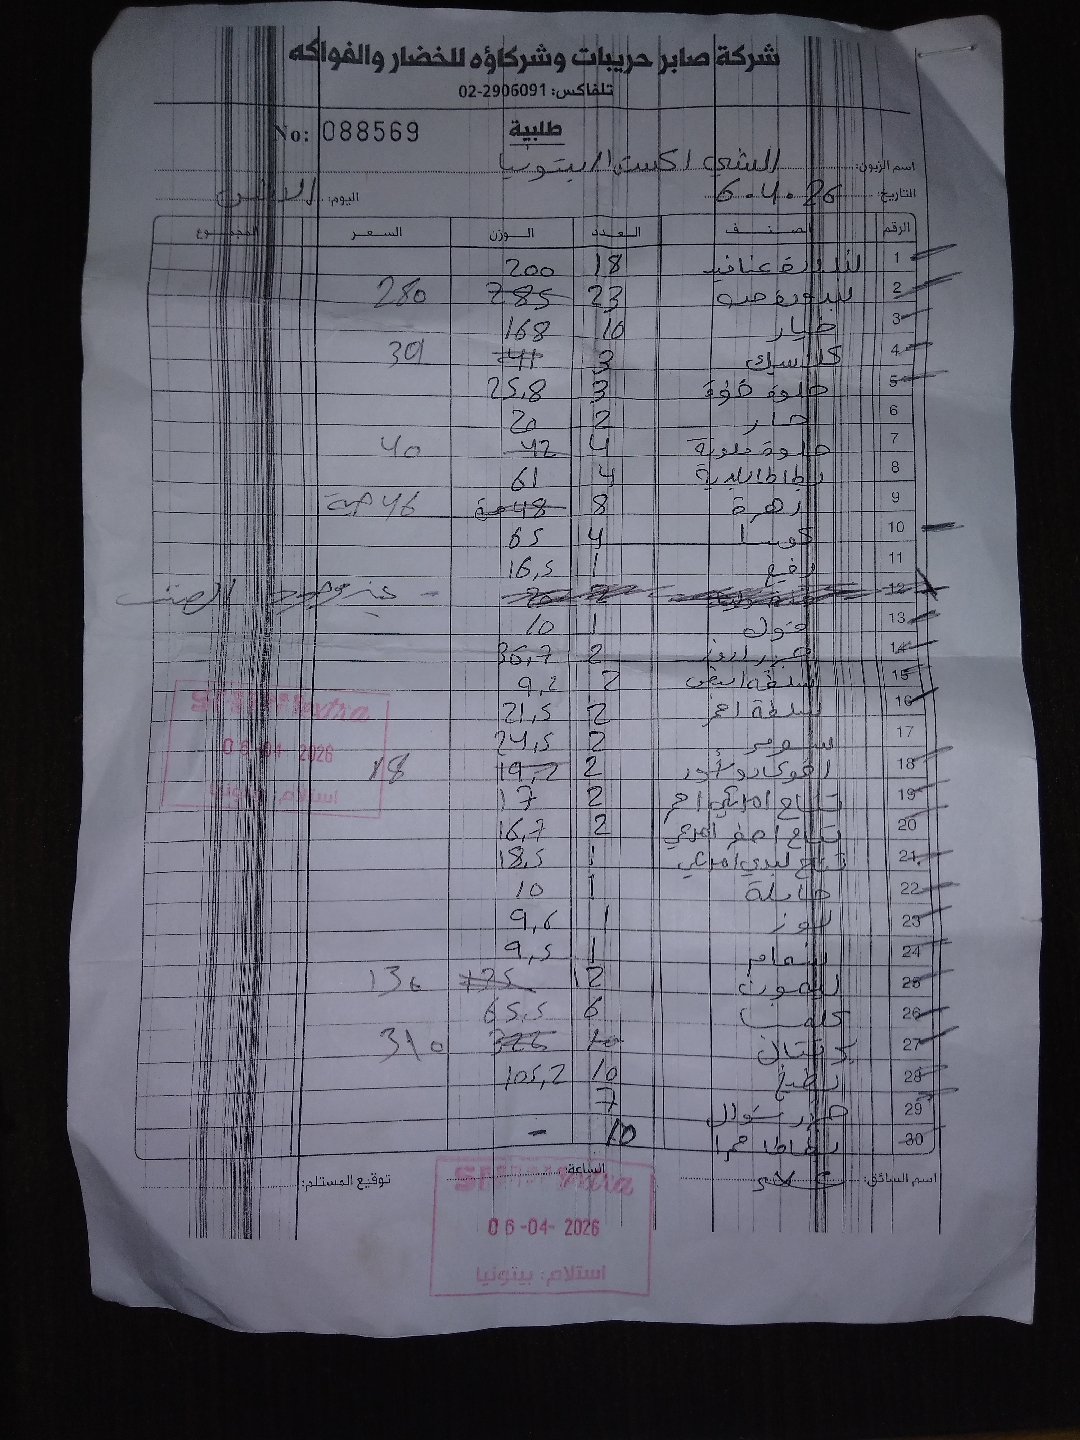 شركة صابر حريبات وشركاؤه للخضار والفواكه
تلفاكس: 02-2906091
طلبية
No: 088569
اسم الزبون: الشني اكسترا / بيتونيا
التاريخ: 6-4-26 اليوم: الاثنين
الرقم الصنف العدد الوزن السعر المجموع
1 بندورة عناقيد 18 200
2 بندورة حب 23 285 280
3 خيار 10 168
4 كلاسيك 3 41 39
5 حلوة 3 25,8
6 حار 2 20
7 حلوة ملونة 4 42 40
8 بطاطا بلدية 4 61
9 زهرة 8 48 حبة 46 حبة
10 كوسا 4 65
11 رفيع 1 16,5
12 2 20 - غير موجود الصنف
13 فول 1 10
14 2 36,7
15 بصلة ابيض 2 9,2
16 بصلة احمر 2 21,5
17 2 24,5
18 افوكادو 2 19,2 18
19 تفاح امريكي احمر 2 17
20 تفاح اصفر امريكي 2 16,7
21 تفاح ليدي امريكي 1 18,5
22 1 10
23 لوز 1 9,6
24 شمام 1 9,5
25 ليمون 12 135 130
26 كلمنتينا 6 65,5
27 برتقال 326 310
28 بطيخ 10 105,2
29 خيار 7
30 بطاطا حمرا 10 -
اسم السائق: الساعة: توقيع المستلم:
extra
06-04-2026
استلام: بيتونيا
extra
06-04-2026
استلام: بيتونيا